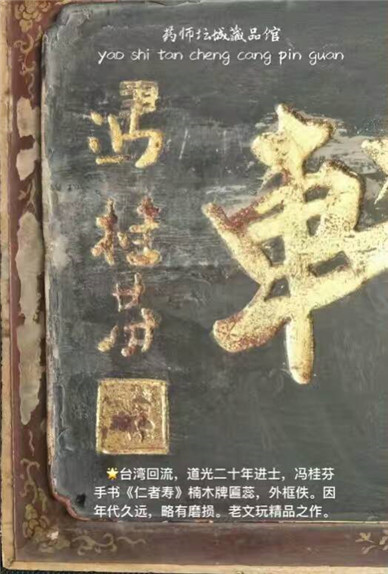 药师坛城藏品馆
yao shi tan cheng cang pin guan
馮桂芬
🌟台湾回流，道光二十年进士，冯桂芬
手书《仁者寿》楠木牌匾蕊，外框佚。因
年代久远，略有磨损。老文玩精品之作。